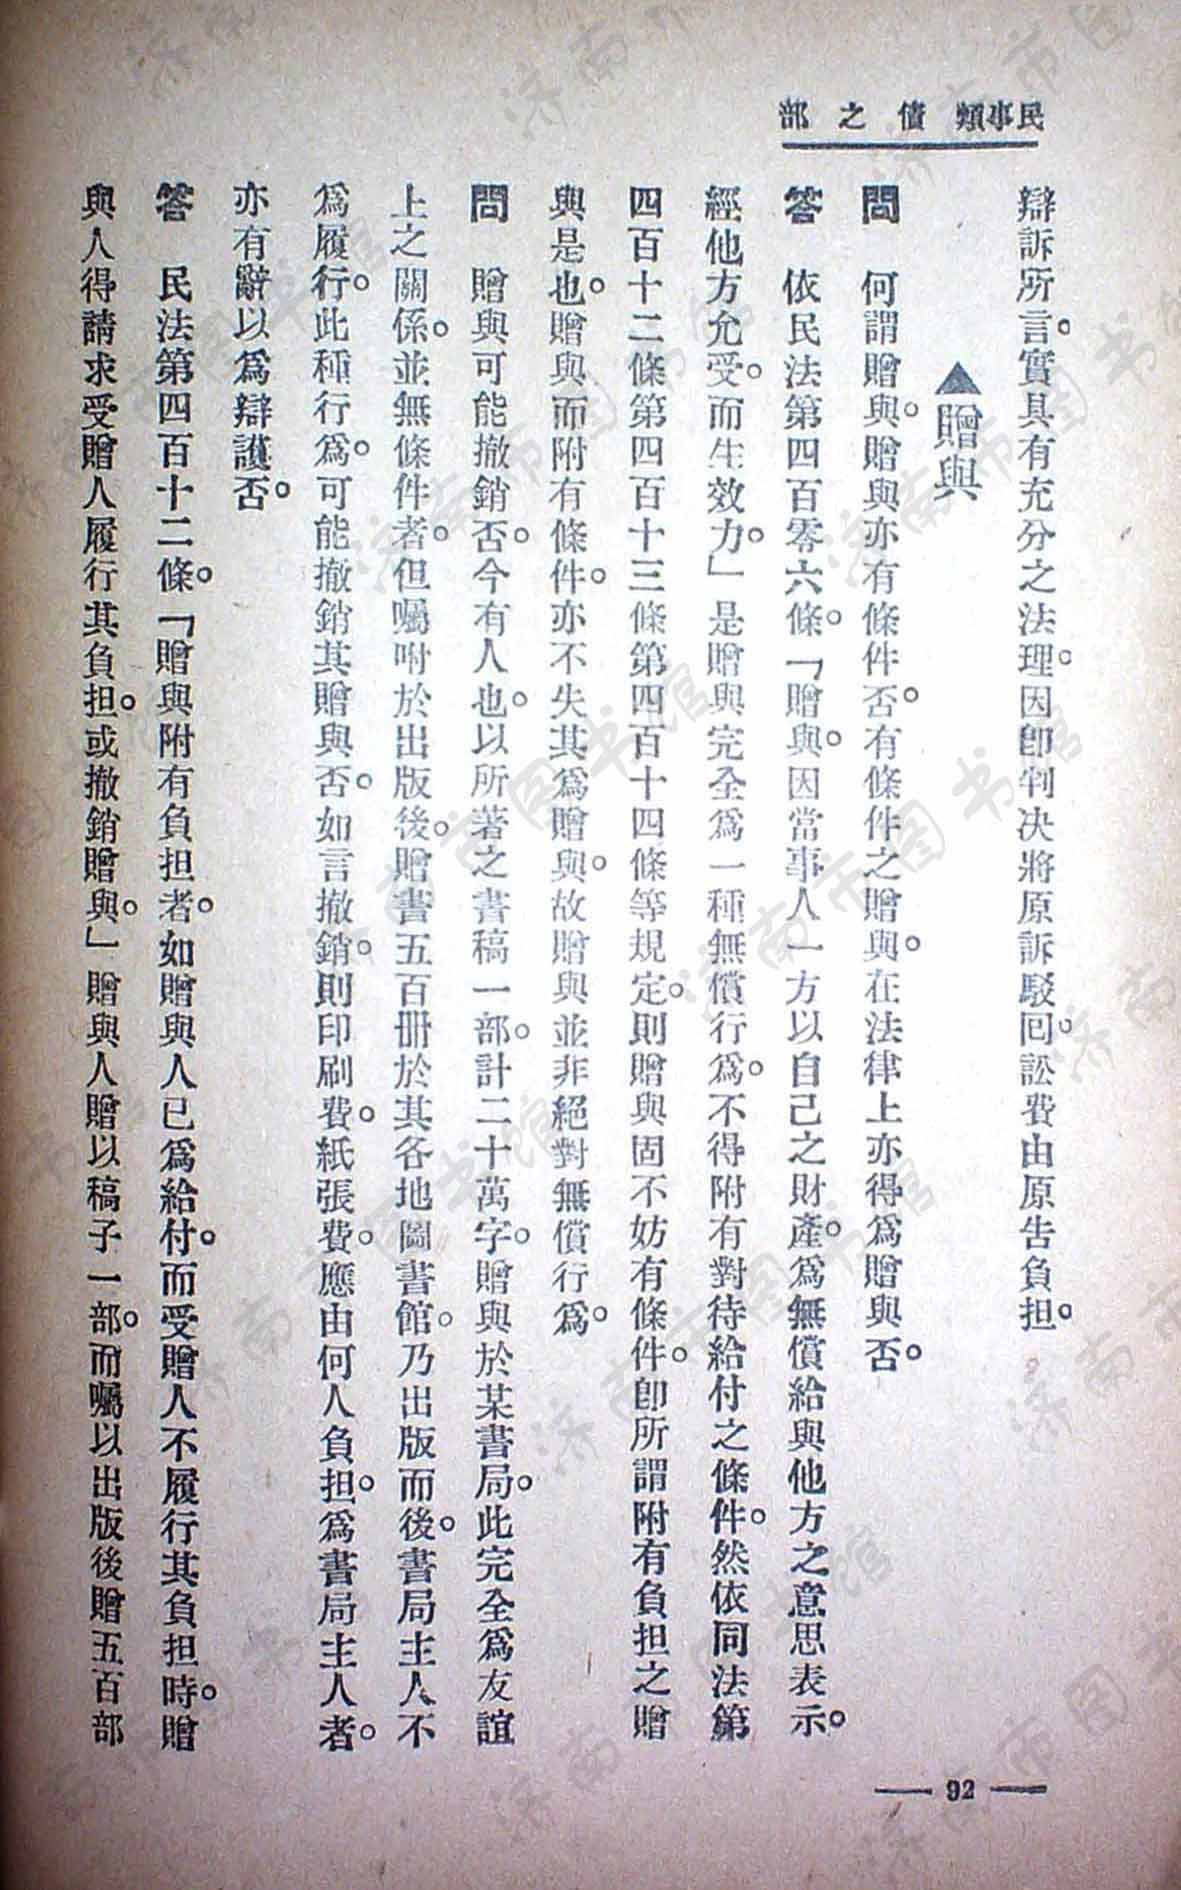 民事類　債之部
辯訴所言。實具有充分之法理。因卽判决將原訴駁回。訟費由原告負担。
▲贈與
問　何謂贈與。贈與亦有條件否。有條件之贈與。在法律上亦得爲贈與否。
答　依民法第四百零六條。「贈與。因當事人一方以自己之財產。爲無償給與他方之意思表示。
經他方允受。而生效力。」是贈與完全爲一種無償行爲。不得附有對待給付之條件。然依同法第
四百十二條第四百十三條第四百十四條等規定。則贈與固不妨有條件。卽所謂附有負担之贈
與是也。贈與而附有條件。亦不失其爲贈與。故贈與並非絕對無償行爲。
問　贈與可能撤銷否。今有人也。以所著之書稿一部。計二十萬字。贈與於某書局。此完全爲友誼
上之關係。並無條件者。但囑咐於出版後。贈書五百册於其各地圖書館。乃出版而後。書局主人不
爲履行。此種行爲。可能撤銷其贈與否。如言撤銷。則印刷費。紙張費。應由何人負担。爲書局主人者。
亦有辭以爲辯護否。
答　民法第四百十二條。「贈與附有負担者。如贈與人已爲給付。而受贈人不履行其負担時。贈
與人得請求受贈人履行其負担。或撤銷贈與。」贈與人贈以稿子一部。而囑以出版後贈五百部
— 92 —
济南市图书馆